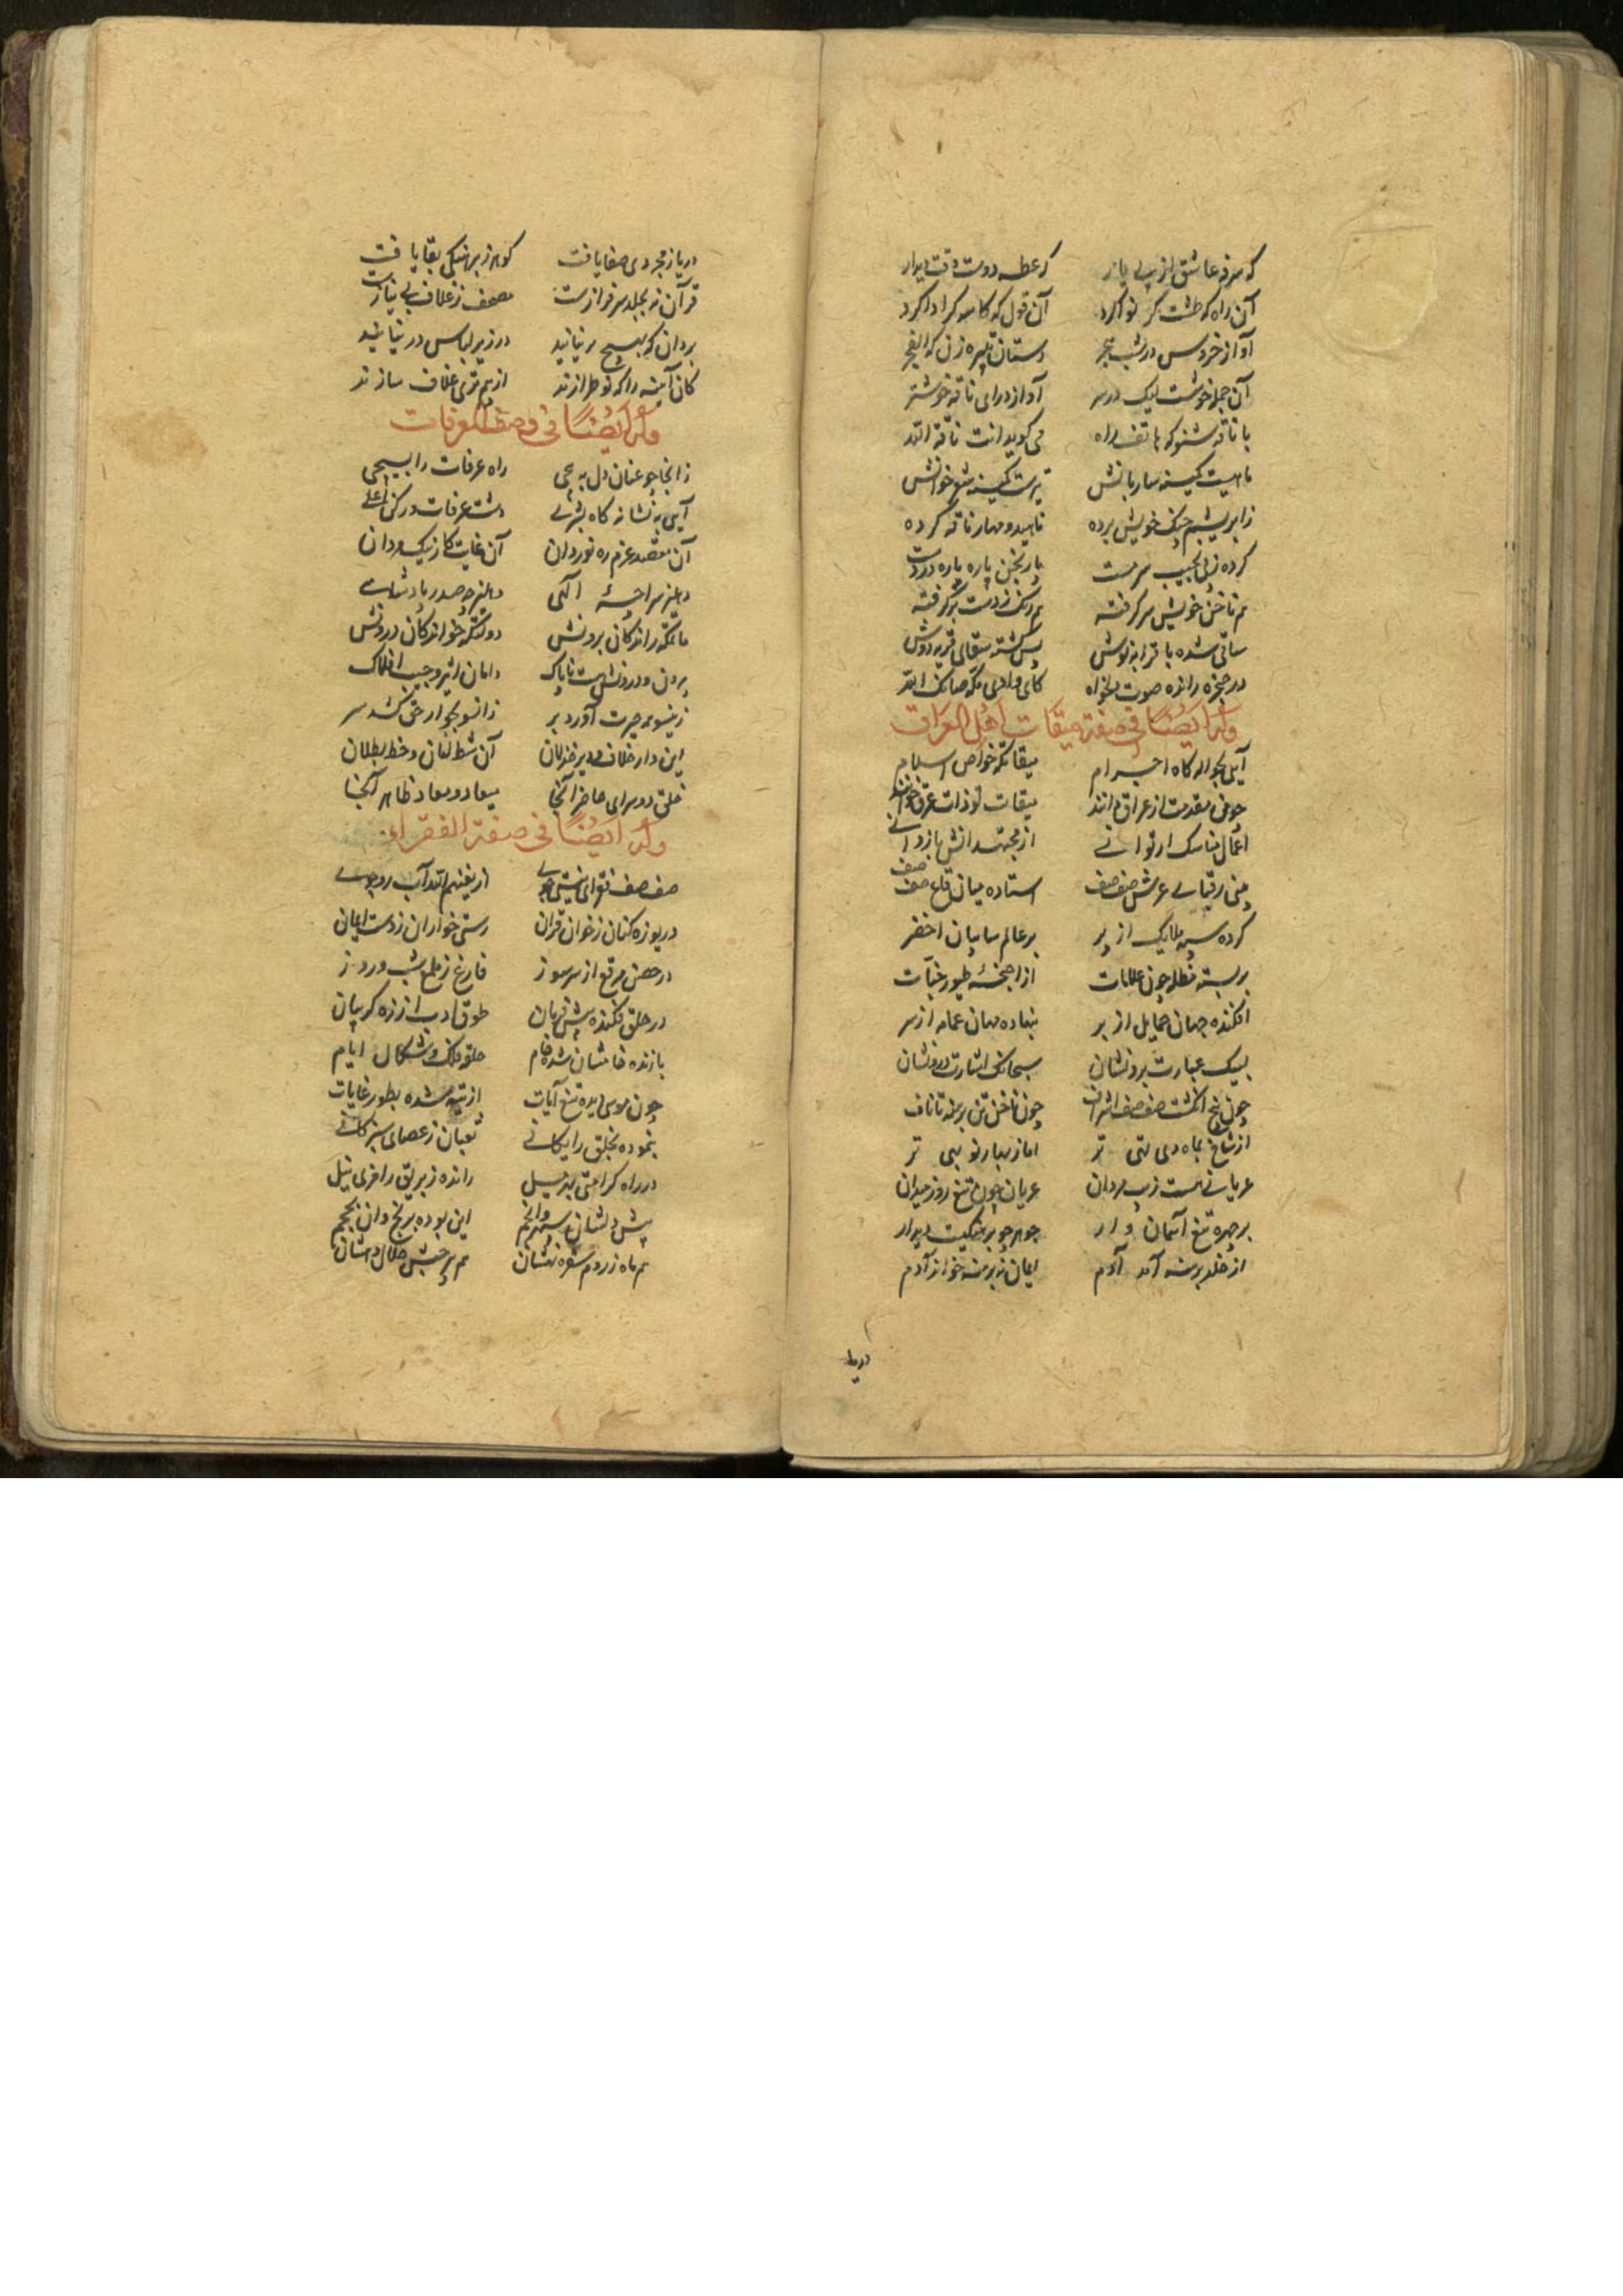 که سرفه عاشق از پی یار کر عطسه دوست وقت دیدار
آن راه که طشت گر نوا کرد آن قول که کاسه گر ادا کرد
آواز خروس در شب هجر دستان تبیره زن که الفجر
آن جمله خوشست لیک در سر آواز درای ناقه خوشتر
با ناقه شنو که هاتف راه می گوید انت ناقة الله
ماهیست کمینه ساربانش تیرست کمینه شعر خوانش
ز ابریشم چنگ خویش برده ناهید و مهار ناقه کرده
کرده زپی نجیب سرمست یارنجن پاره پاره در دست
هم ناخن خویش سر گرفته هم رنگ ز دست بر گرفته
ساقی شده با قرابه نوش پس گشته سقای قربه بر دوش
در صخره رانده صوت دلخواه کای وادی مکه صانک الله
وله ایضًا فی صفة میقات اهل العراق
آیی بحواله گاه احرام میقاتگه خواص اسلام
چون مقدمت از عراق دانند میقات تو ذات عرق خوانند
اعمال مناسک ار توانی از مجتهدانش باز دانی
بینی رقبای عرش صف صف استاده میان قاع صفصف
کرده سپه ملایک از پر بر عالم سایبان اخضر
بر بسته مظله چون علامات از اجنحه طیور جنات
افکنده جهان حمایل از بر بنهاده مهان عمامه از سر
لبیک عبارت برونشان سبحانک اشارت درونشان
چون پنج انگشت صف صف اشراف چون ناخن تن برهنه تا ناف
از شاخ بماه دی تهی تر اما ز بهار نو بهی تر
عریانی هست زیب مردان عریان چون تیغ روز میدان
بر چهره تیغ آسمان وار جوهر چو برهنگیست دیدار
از خلد برهنه آمد آدم ایمان نه برهنه خواند آدم
دریا
دریا ز مجردی صفا یافت گوهر ز برهنگی بقا یافت
قرآن نه بجلد سرفرازست مصحف ز غلاف بی نیازست
مردان که بهیچ بر نیایند در زیر لباس در نیایند
کان آینه را که نو طرازند از هم تری غلاف سازند
وله ایضًا فی وصف العرفات
زانجا چو عنان دل به پیچی راه عرفات را بسیجی
آیی به نشانه گاه بشری دشت عرفات و رکن اعلی
آن مقصد عزم ره نوردان آن غایت کار نیک مردان
دهلیز سراچه الهی دهلیز چه صدر پادشاهی
ماتمگه راندگان برونش دولتگه خواندگان درونش
بیرون و درونش هست ناپاک دامان اثیر و جیب افلاک
زینسو همه حیرت آورد بر زانسو بجوار حق کشد سر
این دار خلاف و دیر خذلان آن شط لبنان و خط بطلان
خلق دو سرای حاضر آنجا میعاد و معاد ظاهر آنجا
وله ایضًا فی صفة الفقراء
صف صف فقرای نیستی جوی از یغنیهم الله آب در جوی
دریوزه کنان ز خوان قرآن رستی خواران ز دست ایمان
در حصن مرقع از سر سوز فارغ ز طمع شب و روز
در حلق فکنده پیش فرمان طوق ادب از زه گریبان
بازنده خامشان شده خام حلق فلک و شکال ایام
چون موسی دیده تیغ آیات از تیه شده بطور غایات
بنموده بخلق رایگانی ثعبان ز عصای سبز گانی
در راه کرامتی به ترسیل رانده ز بریق رافری نیل
پیش دلشان سپهر و انجم این بوده برنج و آن بجمجم
هم ماه ز ردم سفره نهشان هم چرخ حلال دهشان